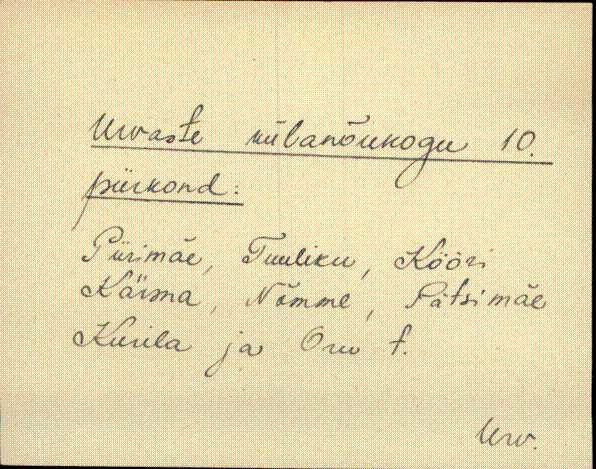 Urvaste külanõukogu 10.
piirkond:
Piirimäe, Tuuliku, Kööri
Kärma, Nõmme, Pätsimäe
Kurila ja Oru t.
Urv.